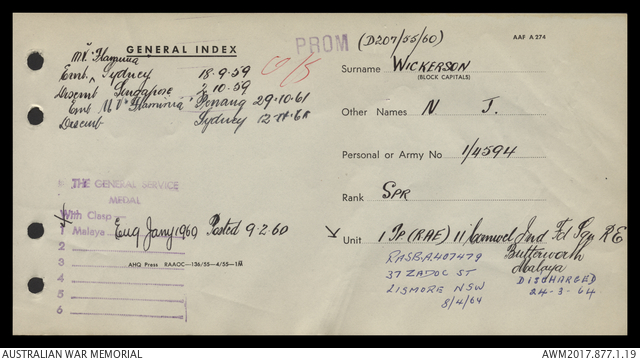 GENERAL INDEX
PROM
(D207/55/60)
AAF A 274
M.V. Flaminia
Emb. Sydney 18-9-59
Disemb Singapore 2-10-59
Emb M.V "Flaminia" Penang 29-10-61
Disemb Sydney
Surname WICKERSON
(BLOCK CAPITALS)
Other Names N J.
Personal or Army No 1/4594
Rank SPR
THE GENERAL SERVICE
MEDAL
With Clasp
1 Malaya Enq Jany 1960 Posted 9-2-60
2
3
4
5
6
AHQ Press RAAOC—136/55—4/55—1M
Unit 1 Tp (RAE) 11 Ind Fd Sqn RE
Butterworth
Malaya
RASBA407479
37 ZADOC ST
LISMORE NSW
8/4/64
DISCHARGED
24-3-64
AUSTRALIAN WAR MEMORIAL
AWM2017.877.1.19